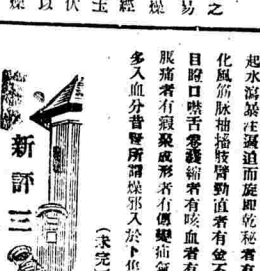 之
易
燥
經
伏
以
燥
起水瀉暴注逼迫而旋即乾秘者有
化風筋脉抽搐肢臂勁直者有金不
目瞪口噤舌卷囊縮者有咳血者有
脹痛者有瘕聚成形者有傳變疝
多入血分昔賢所謂燥邪入於下焦
(未完)
新評三